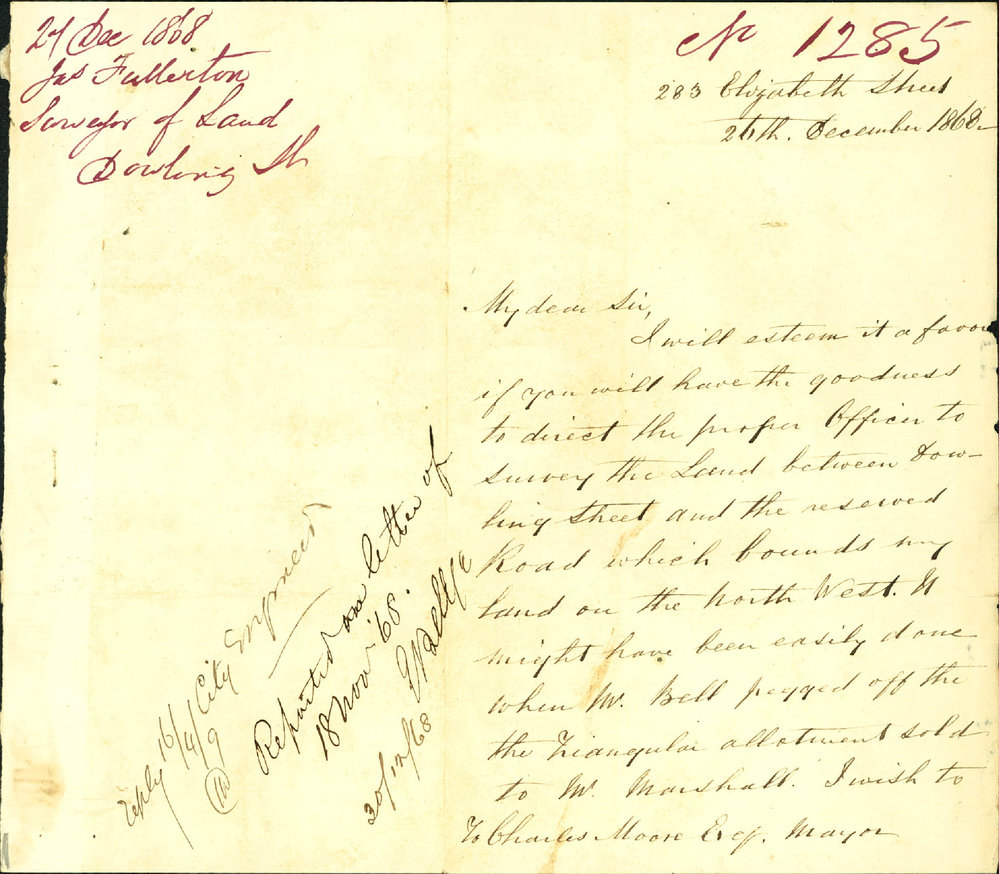 27 Dec 1868
Jas Fullerton
Surveyor of Land
Dowling St
No 1285
283 Elizabeth Street
26th. December 1868
My dear Sir,
I will esteem it a favor
if you will have the goodness
to direct the proper Officer to
survey the Land between Dow-
ling Street and the reserved
Road which bounds my
land on the North West. It
might have been easily done
when Mr. Bell pegged off the
the Triangular allotment sold
to Mr. Marshall. I wish to
To Charles Moore Esq. Mayor
City Engineer
Reported on letter of
18 Nov. '68.
E Bell CE
30/12/68
reply 16/4/9